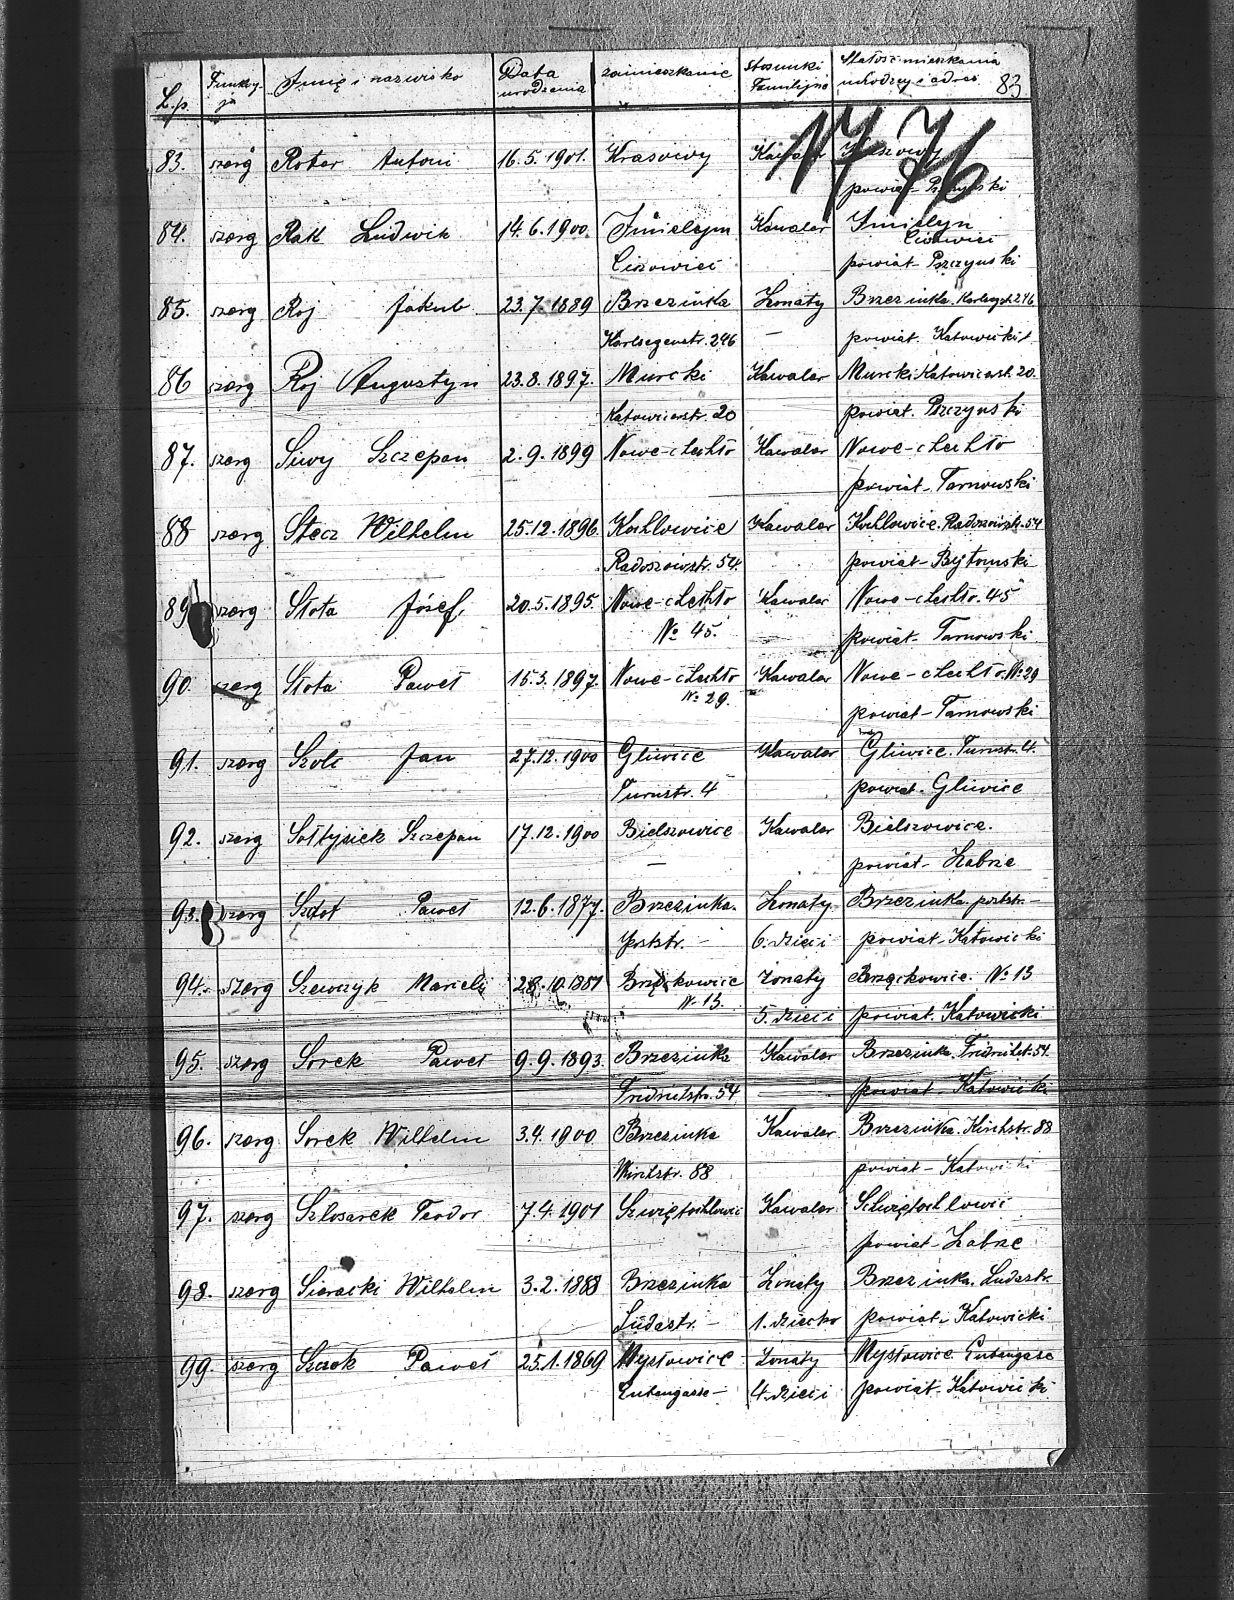 L.p. Funkcyja Imię i nazwisko Data urodzenia zamieszkanie Stosunki Familijne miejsce i adres 83
1776
83. szerg Rotor Antoni 16.5.1901. Krasowy Kawaler
powiat
84. szerg Rak Ludwik 14.6.1900. Imielyn Kawaler Imielyn
Cisowiec Cisowiec
powiat Pszczynski
85. szerg Roj Jakub 23.7.1889 Brzezinka Zonaty Brzezinka 246
Karlsegenstr. 246 — powiat. Katowicki
86 szerg Roj Augustyn 23.8.1897. Murcki Kawaler Murcki Katowicerst. 20.
Katowicerstr. 20 powiat. Pszczynski
87. szerg Siwy Szczepan 2.9.1899 Nowe-Chechło Kawaler Nowe-Chechło
powiat- Tarnowski
88 szerg Stecz Wilhelm 25.12.1896. Kochlowice Kawaler Kochlowice. 54
Radoszowstr. 54 powiat- Bytomski
89 szerg Słota Józef, 20.5.1895. Nowe-Chechło Kawaler Nowe-Chechło. 45
No 45. powiat- Tarnowski
90. szerg Słota Paweł 15.3.1897. Nowe-Chechło Kawaler Nowe-Chechło. No 29
No 29. powiat- Tarnowski
91. szerg Szolc Jan 27.12.1900 Gliwice Kawaler Gliwice. Turnstr. 4.
Turnstr. 4 powiat. Gliwice
92. szerg Sołtysiek Szczepan 17.12.1900 Bielszowice Kawaler Bielszowice.
— powiat- Zabrze
93. szerg Paweł 12.6.1877. Brzezinka. Zonaty Brzezinka poststr.-
Poststr.- 6. dzieci powiat. Katowicki
94. szerg Szewczyk Marceli 28.10.1881 Brzęckowice Zonaty Brzęckowice. No 13
No 13. 5. dzieci powiat. Katowicki
95. szerg Sorek Paweł 9.9.1893. Brzezinka Kawaler Brzezinka. 54.
54 — powiat- Katowicki
96. szerg Sorek Wilhelm 3.4.1900 Brzezinka Kawaler Brzezinka. Kirchstr. 88
Kirchstr. 88 powiat- Katowicki
97. szerg Szlosarek Teodor 7.4.1901 Szwiętochlowic Kawaler Schwiętochlowic
powiat- Zabrze
98. szerg Sieracki Wilhelm 3.2.1888 Brzezinka Zonaty Brzezinka.
1. dziecko powiat- Katowicki
99. szerg Paweł 25.1.1869 Mysłowice Zonaty Mysłowice
4. dzieci powiat. Katowicki